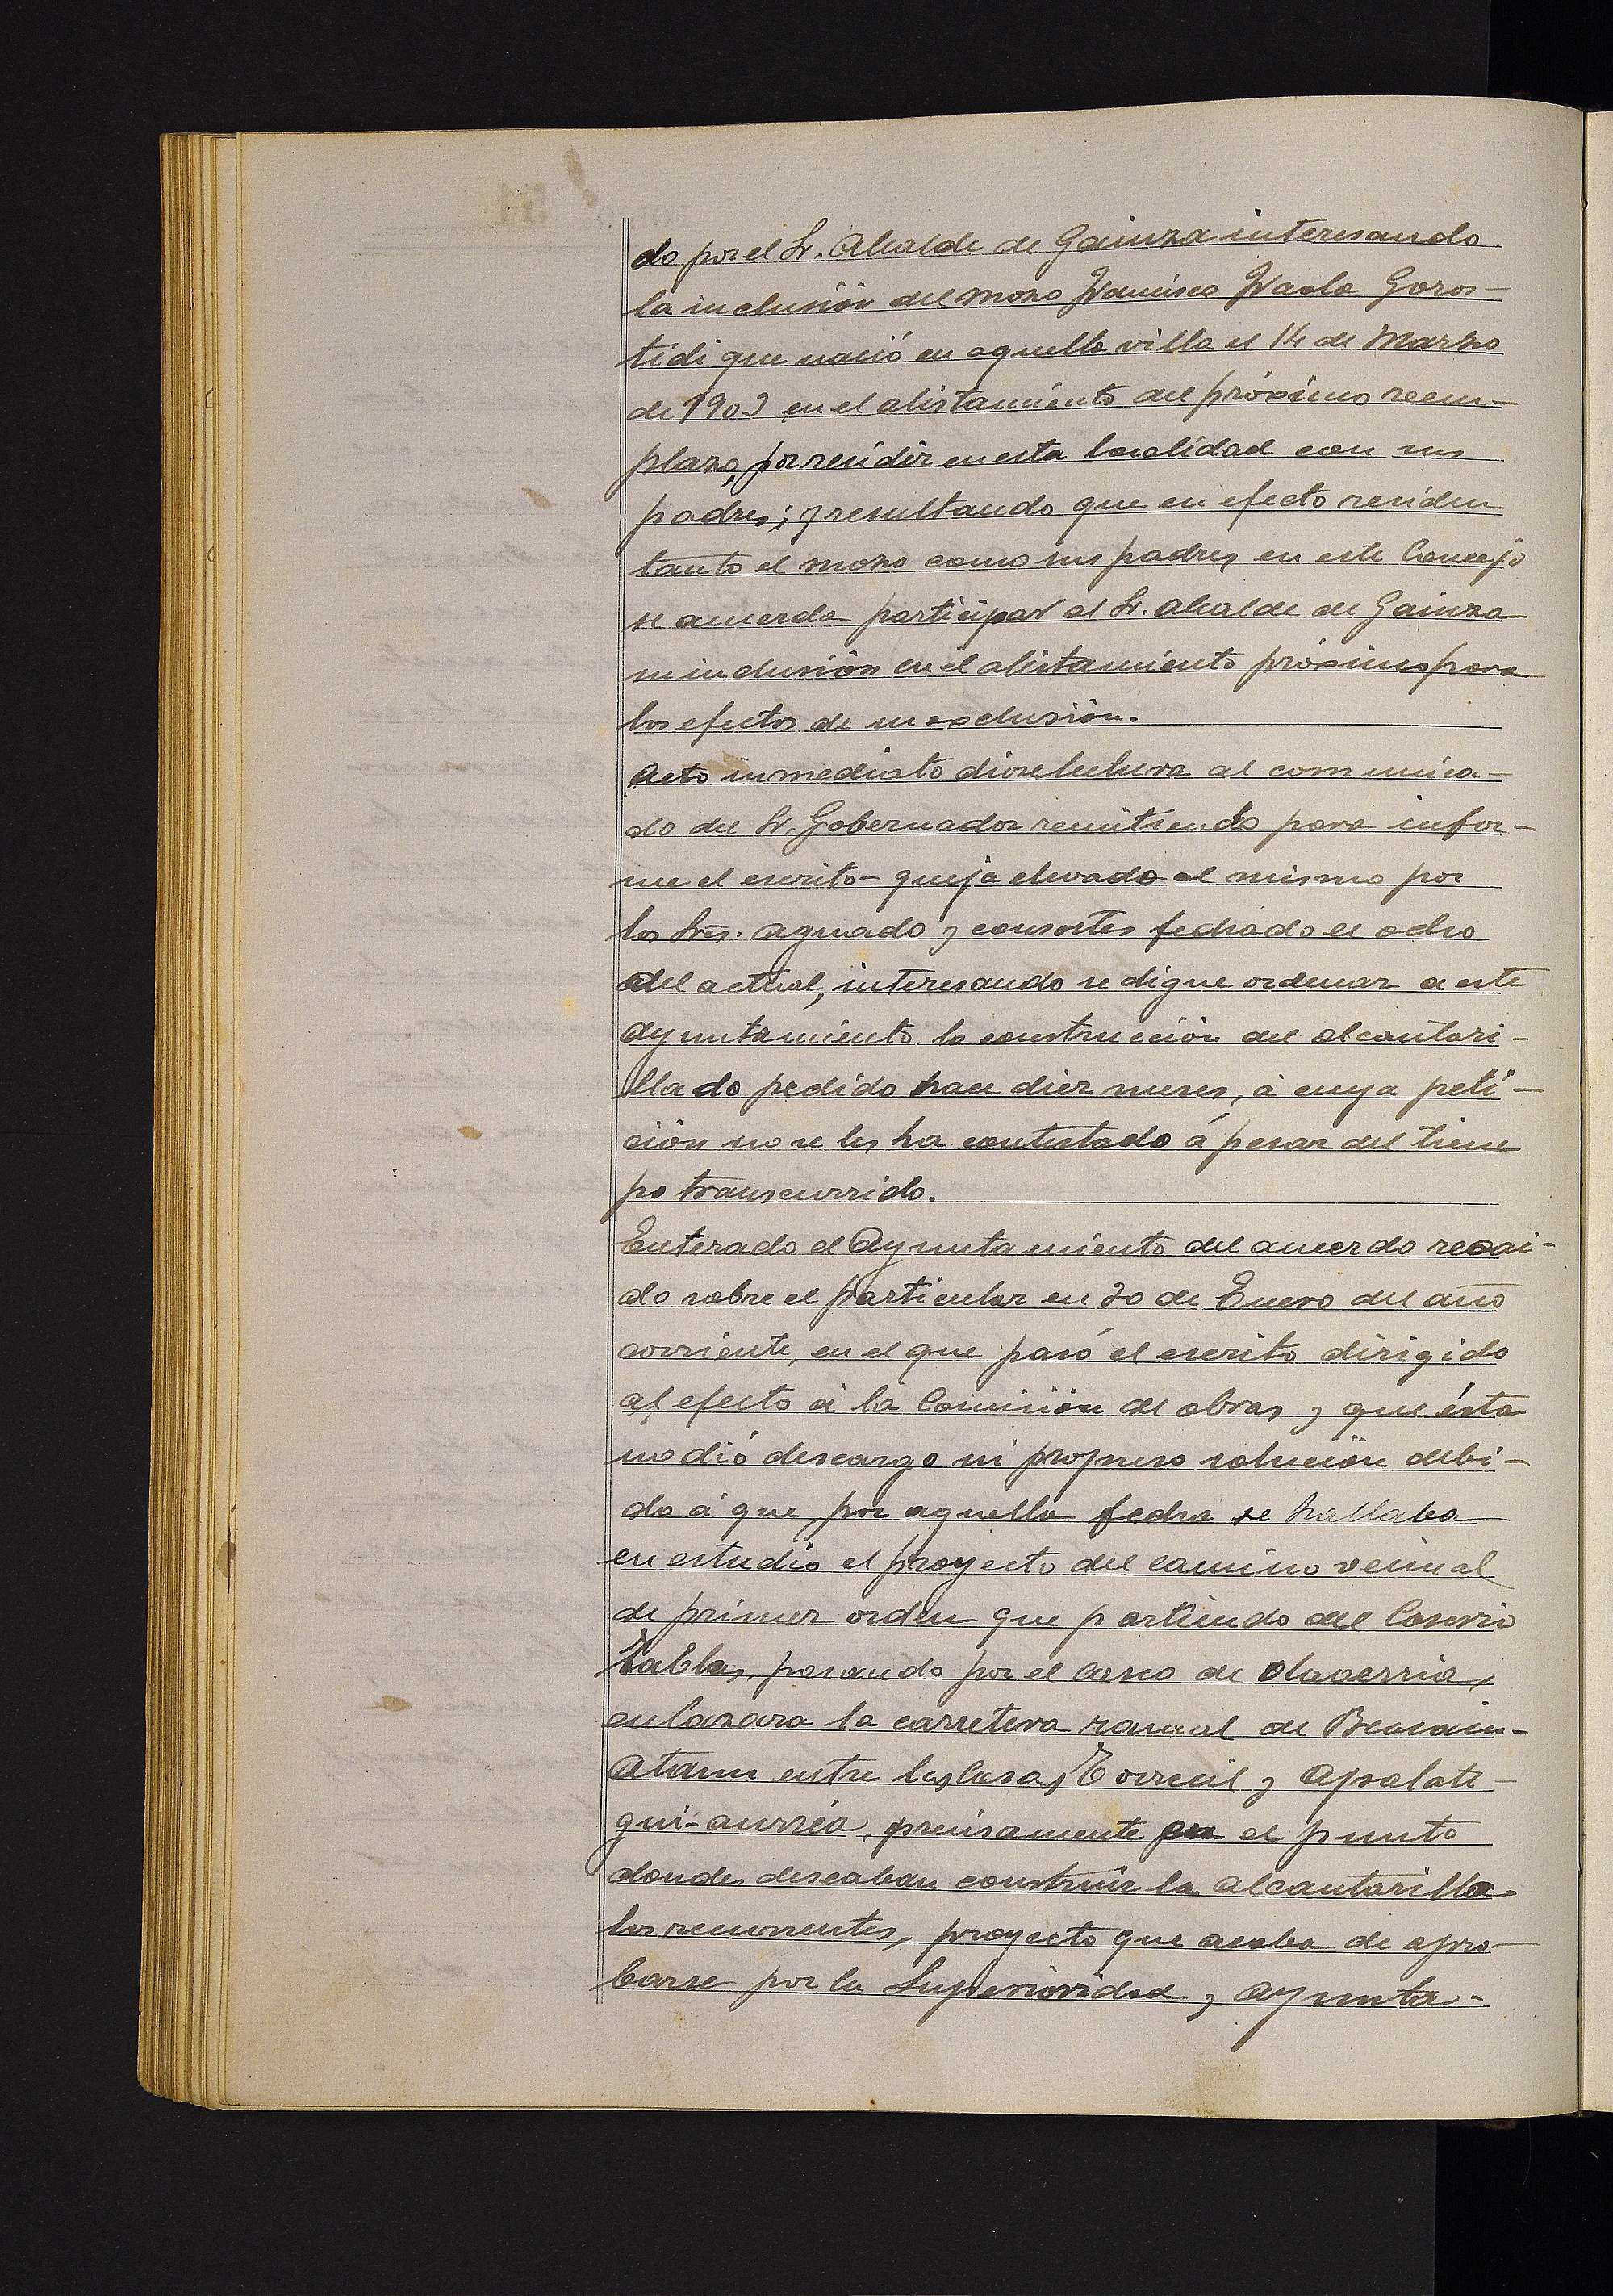 do por el Sr. Alcalde de Gainza interesando
la inclusión del mozo Francisco Iraola Goros-
tidi que nació en aquella villa el 14 de Marzo
de 1902 en el alistamiento del próximo reem-
plazo, por residir en esta localidad con sus
padres; y resultando que en efecto residen
tanto el mozo como sus padres en este Concejo
se acuerda participar al Sr. Alcalde de Gainza
su inclusión en el alistamiento próximo para
los efectos de su exclusión.
Acto inmediato diose lectura al comunica-
do del Sr. Gobernador remitiendo para infor-
me el escrito-queja elevado al mismo por
los Sres. Aguado y consortes fechado el ocho
del actual, interesando se digne ordenar a este
Ayuntamiento la construcción del alcantari-
llado pedido hace diez meses, à cuya peti-
ción no se les ha contestado á pesar del tiem
po transcurrido.
Enterado el Ayuntamiento del acuerdo recai-
do sobre el particular en 20 de Enero del año
corriente, en el que pasó el escrito dirigido
al efecto à la Comisión de obras y que ésta
no dió descargo ni propuso solución debi-
do á que por aquella fecha se hallaba
en estudio el proyecto del camino vecinal
de primer orden que partiendo del Caserio
Tablas, pasando por el Casco de Olaverria,
enlazara la carretera ramal de Beasain-
Ataun entre las Casas Torrecil y Apalate-
gui-aurréa, precisamente en el punto
dondes deseaban construir la alcantarilla
los recurrentes, proyecto que acaba de apro-
barse por la Superioridad y Ayunta-